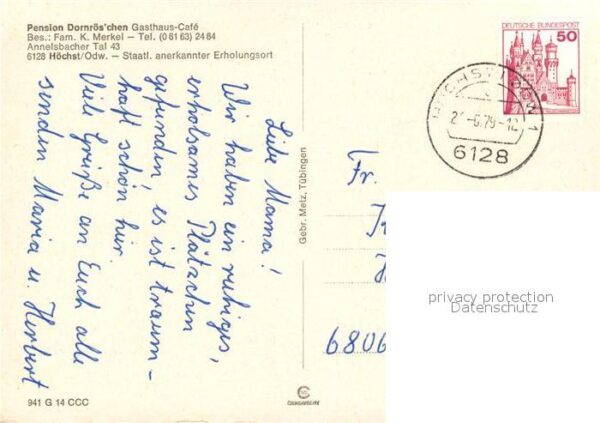 Pension Dornrös'chen Gasthaus-Café
Bes.: Fam. K. Merkel — Tel. (0 61 63) 24 84
Annelsbacher Tal 43
6128 Höchst/Odw. — Staatl. anerkannter Erholungsort
Liebe Mama!
Wir haben ein ruhiges,
erholsames Plätzchen
gefunden, es ist traum-
haft schön hier.
Viele Grüße an Euch alle
senden Maria u. Herbert
941 G 14 CCC
Gebr. Metz, Tübingen
DEUTSCHE BUNDESPOST
50
6128
Fr.
6806
privacy protection
Datenschutz